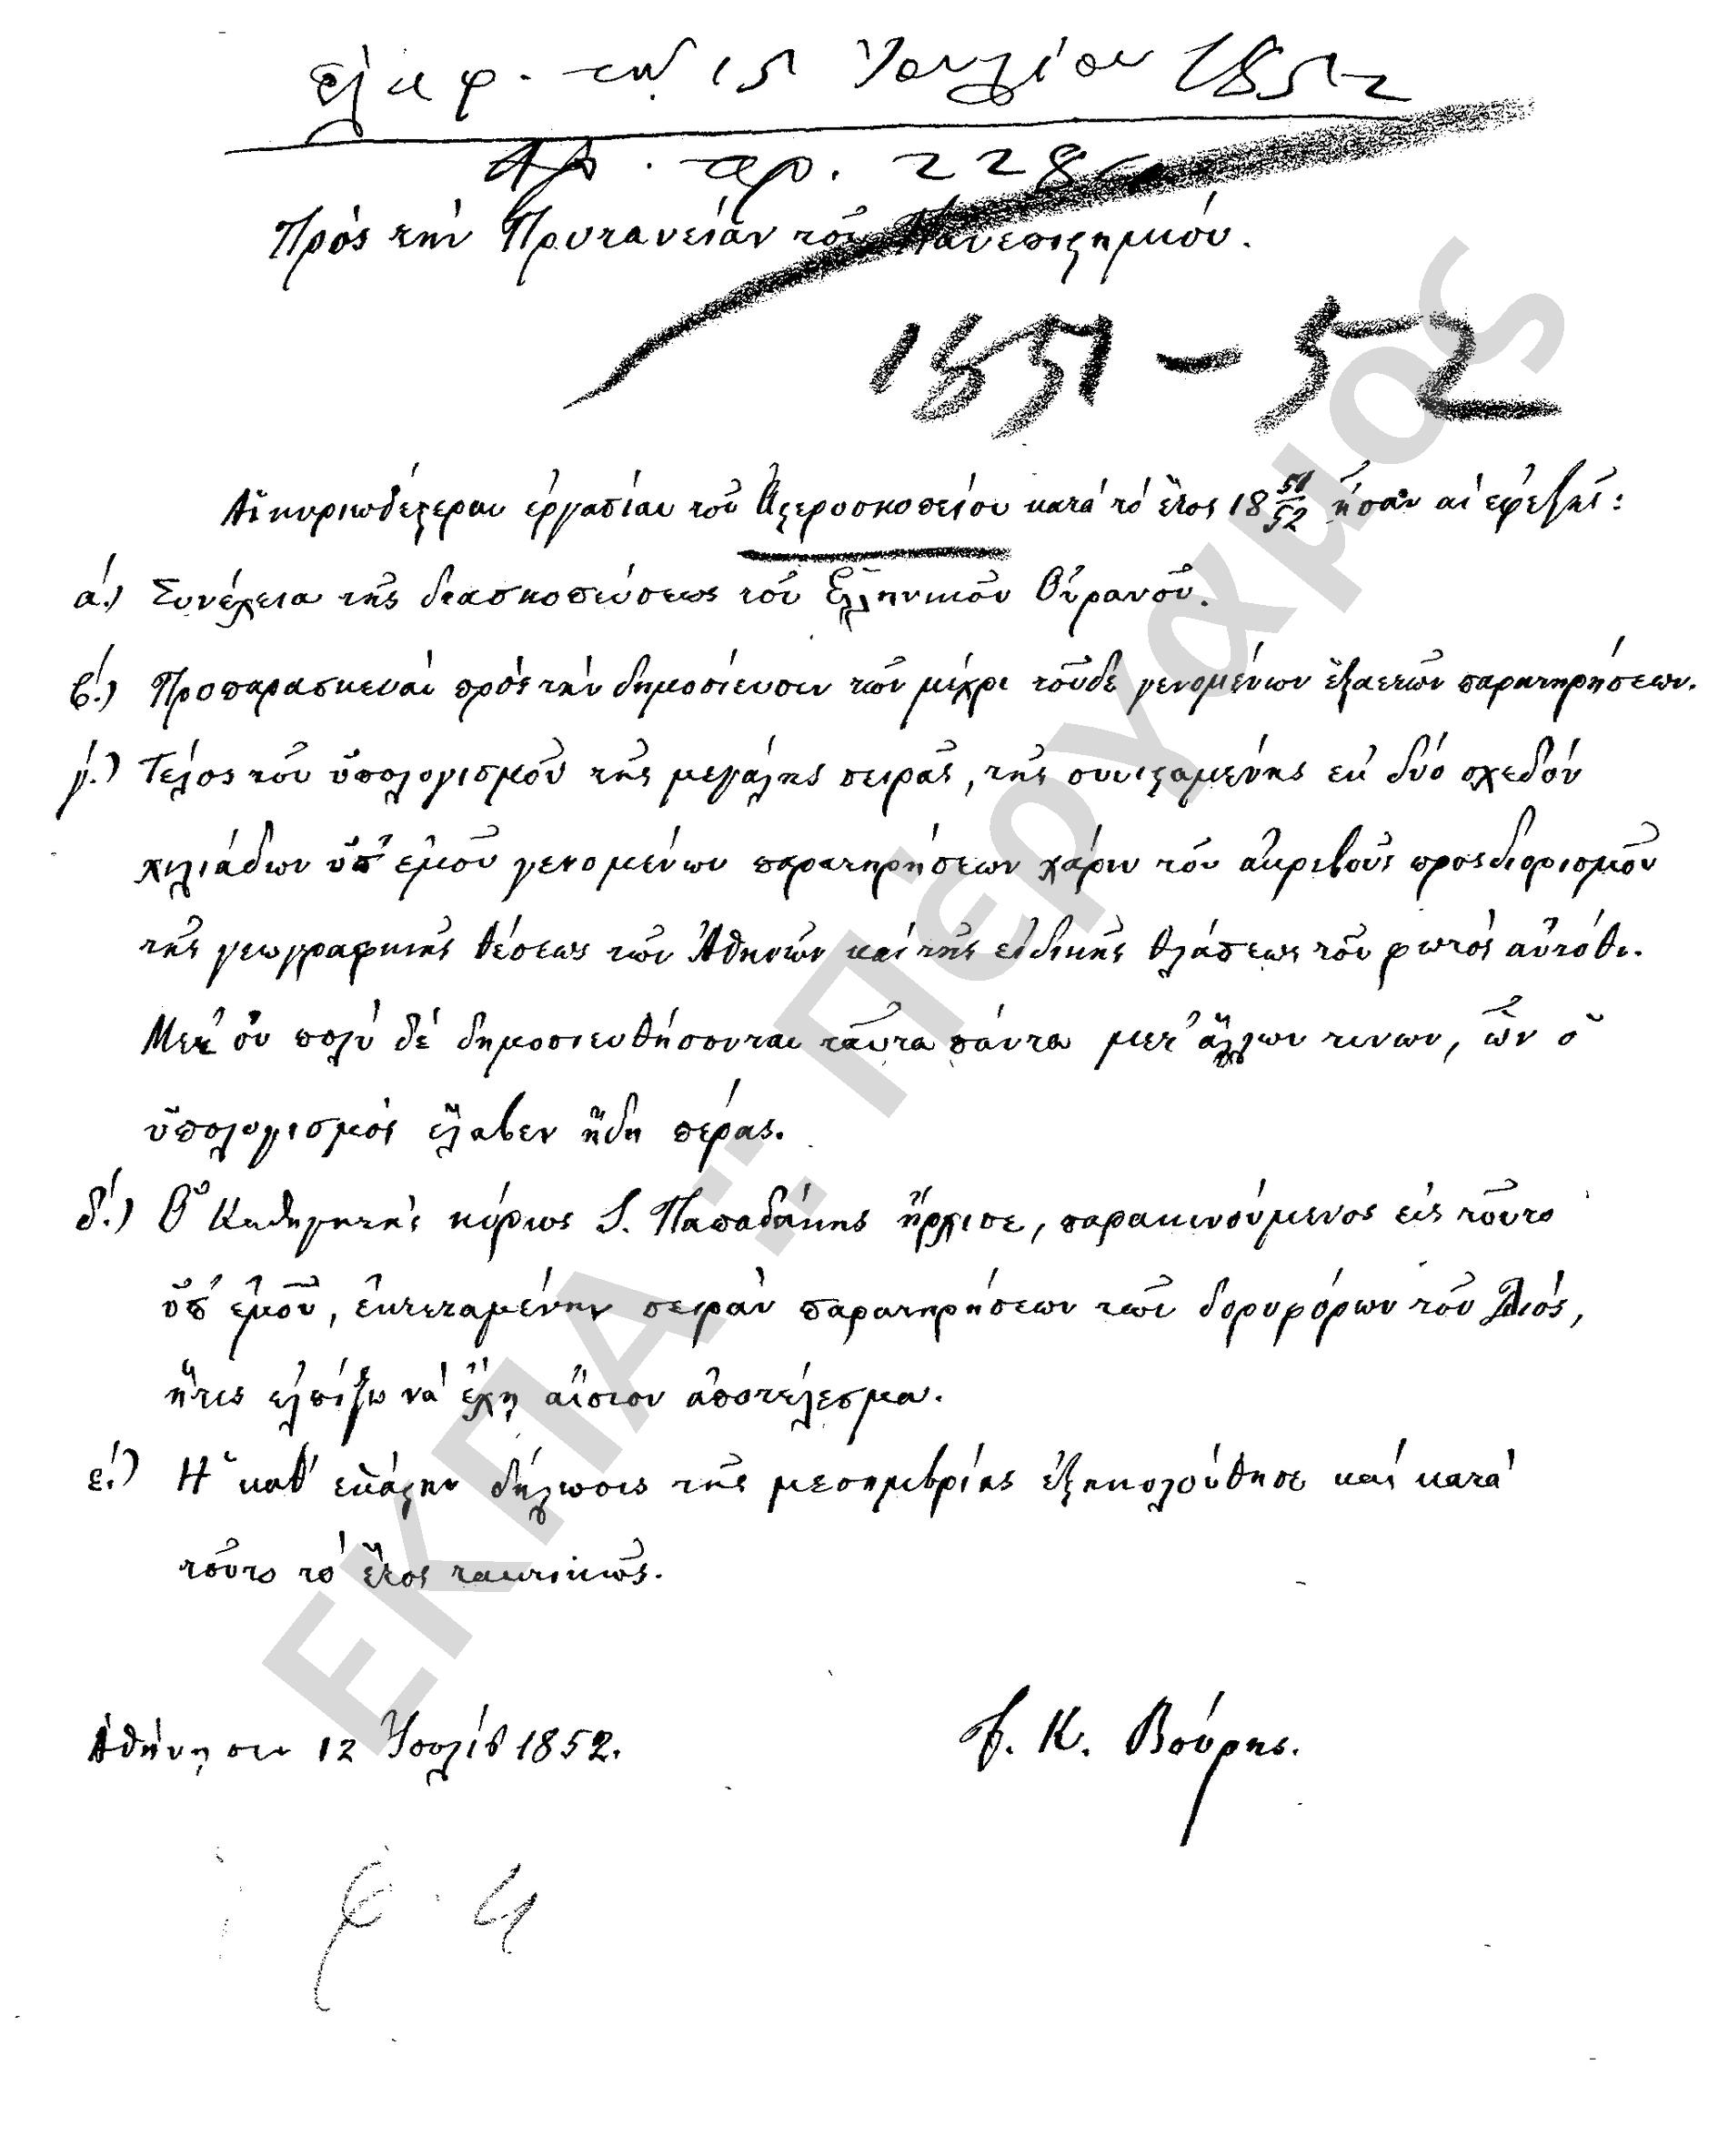 ἐλήφ. τῇ 15 Ἰουλίου 1852
Ἀρ. πρ. 228
Πρὸς τὴν Πρυτανείαν τοῦ Πανεπιστημίου.
1851 - 52
Αἱ κυριωδέστεραι ἐργασίαι τοῦ Ἀστεροσκοπείου κατὰ τὸ ἔτος 18 51/52 ἦσαν αἱ ἐφεξῆς:
ά.) Συνέχεια τῆς διασκοπεύσεως τοῦ Ἑλληνικοῦ Οὐρανοῦ.
β΄.) Προπαρασκευαὶ πρὸς τὴν δημοσίευσιν τῶν μέχρι τοῦδε γενομένων ἑξαετῶν παρατηρήσεων.
γ΄.) Τέλος τοῦ ὑπολογισμοῦ τῆς μεγάλης σειρᾶς, τῆς συνισταμένης ἐκ δύο σχεδὸν
χιλιάδων ὑπ' ἐμοῦ γενομένων παρατηρήσεων χάριν τοῦ ἀκριβοῦς προσδιορισμοῦ
τῆς γεωγραφικῆς θέσεως τῶν Ἀθηνῶν καὶ τῆς εἰδικῆς θλάσεως τοῦ φωτὸς αὐτόθι.
Μετ' οὐ πολὺ δὲ δημοσιευθήσονται ταῦτα πάντα μετ' ἄλλων τινων, ὧν ὁ
ὑπολογισμὸς ἔλαβεν ἤδη πέρας.
δ΄.) Ὁ Καθηγητὴς κύριος Ι. Παπαδάκης ἤρχισε, παρακινούμενος εἰς τοῦτο
ὑπ' ἐμοῦ, ἐκτεταμένην σειρὰν παρατηρήσεων τῶν δορυφόρων τοῦ Διός,
ἥτις ἐλπίζω νὰ ἔχῃ αἴσιον ἀποτέλεσμα.
ε΄.) Ἡ καθ' ἑκάστην δήλωσις τῆς μεσημβρίας ἐξηκολούθησε καὶ κατὰ
τοῦτο τὸ ἔτος τακτικῶς.
Ἀθήνησιν 12 Ἰουλίου 1852.
Γ. Κ. Βούρης.
ΕΚΠΑ :: Πέργαμος